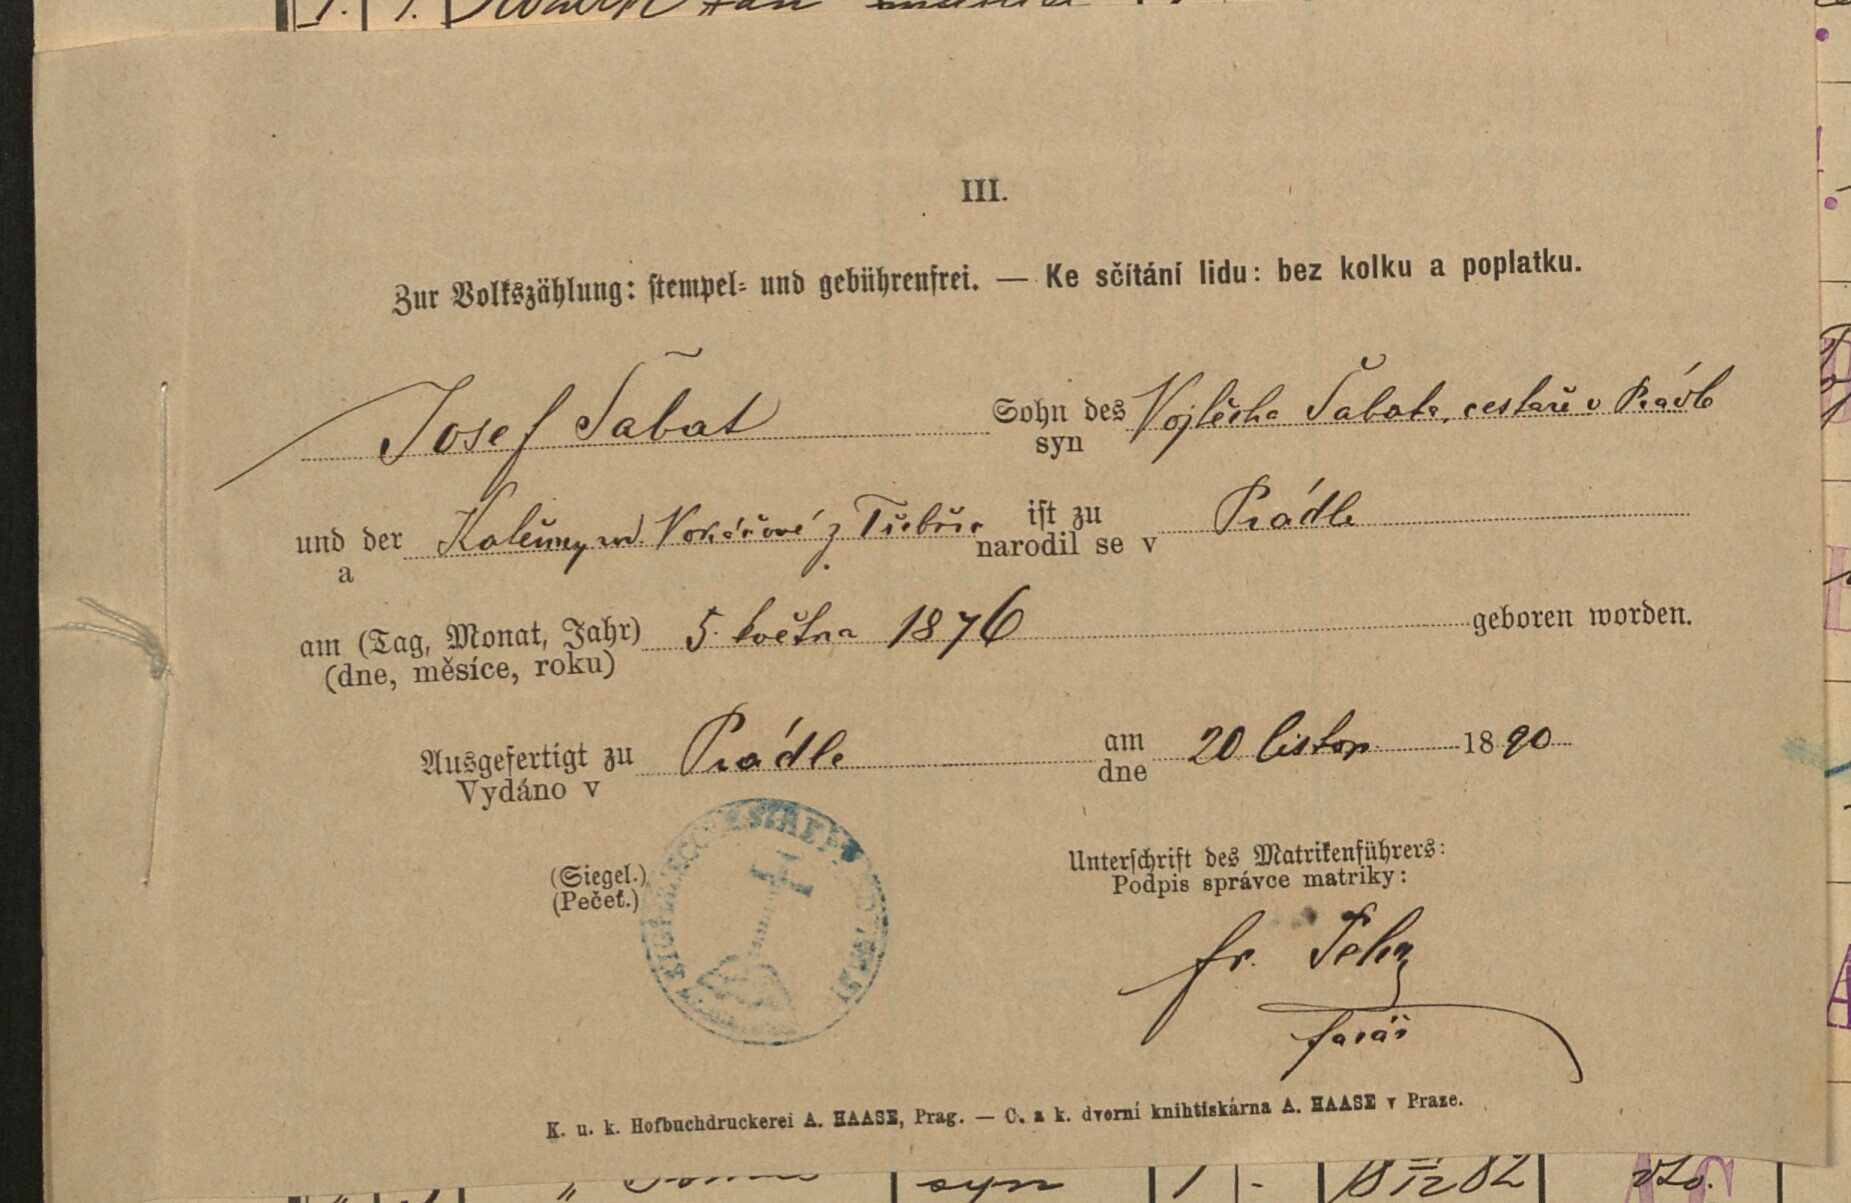 III.
Zur Volkszählung: stempel- und gebührenfrei. — Ke sčítání lidu: bez kolku a poplatku.
Josef Šabat Sohn des Vojtěcha Šabata, cestaře v Prádle
syn
und der Kateřiny roz. z ist zu Prádle
a narodil se v
am (Tag, Monat, Jahr) 5. května 1876 geboren worden.
(dne, měsíce, roku)
Ausgefertigt zu Prádle am 20 listop. 1890
Vydáno v dne
(Siegel.)
(Pečeť.)
Unterschrift des Matrikenführers:
Podpis správce matriky:
fr.
farář
K. u. k. Hofbuchdruckerei A. HAASE, Prag. — C. a k. dvorní knihtiskárna A. HAASE v Praze.
syn 1 -